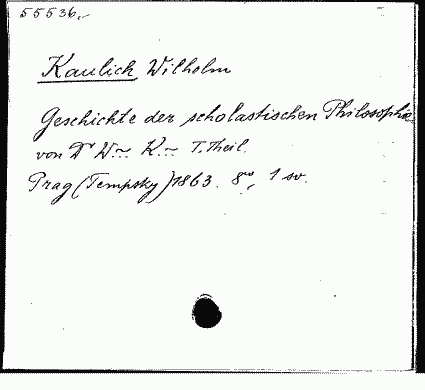 55536.
Kaulich Wilhelm
Geschichte der scholastischen Philosophie
von Dr W~ K~ I. Theil.
Prag (Tempsky) 1863. 8º, 1 sv.